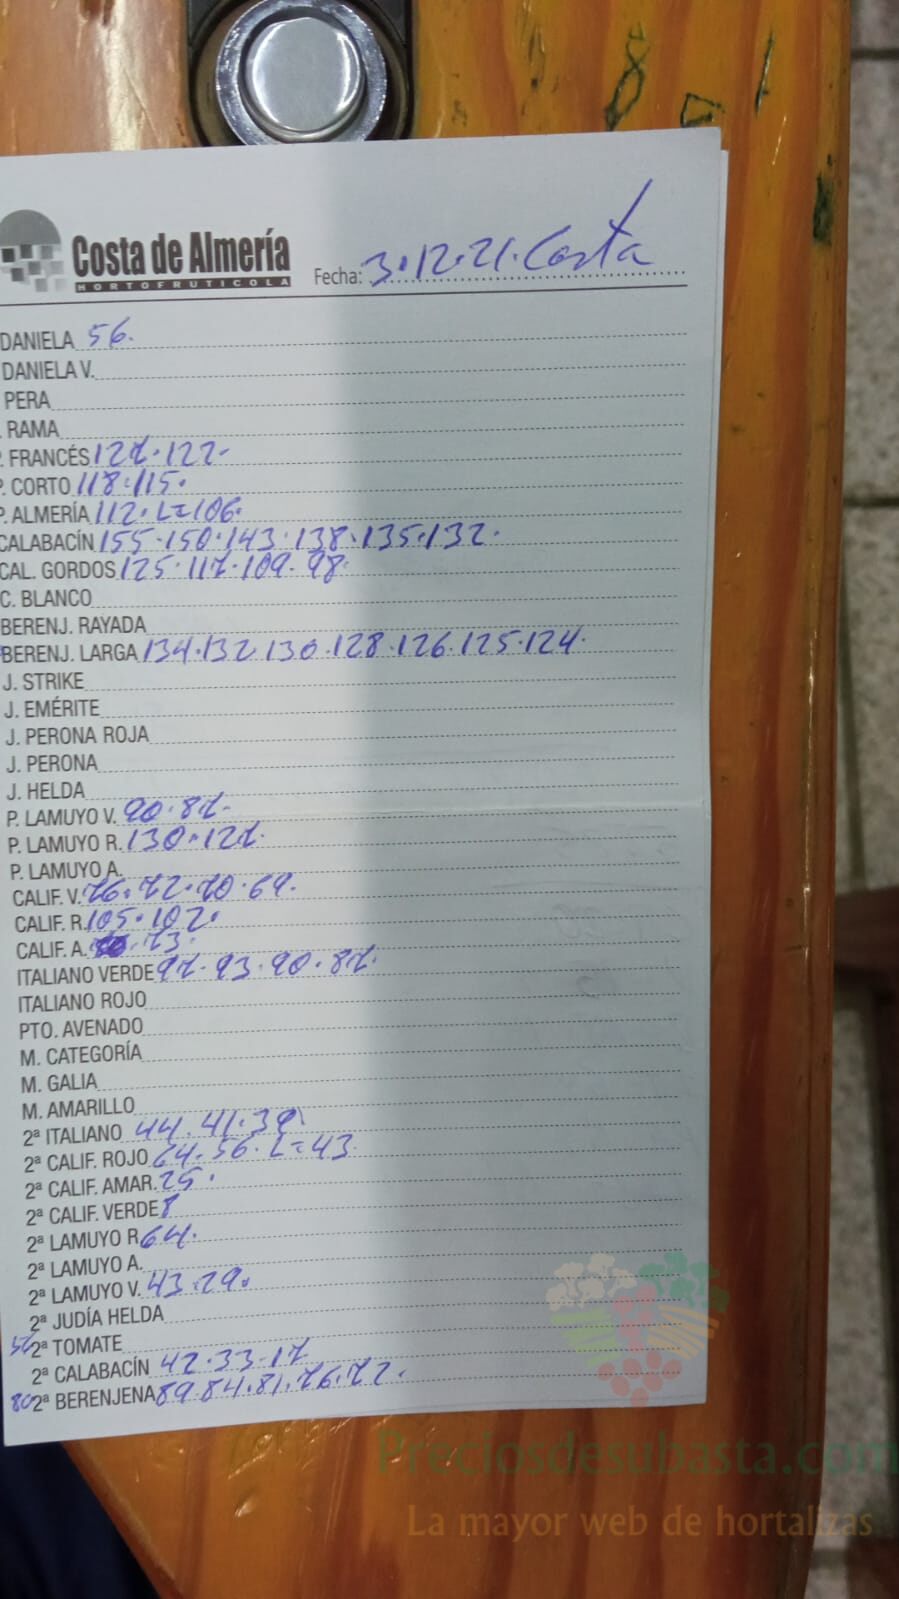 Costa de Almería
HORTOFRUTICOLA
Fecha: 3.12.21. Costa
DANIELA 56.
DANIELA V.
PERA
RAMA
P. FRANCÉS 127.122-
P. CORTO 118.115.
P. ALMERÍA 112. L=106.
CALABACÍN 155.150.143.138.135.132.
CAL. GORDOS 125.117.109.98.
C. BLANCO
BERENJ. RAYADA
BERENJ. LARGA 134.132 130.128.126.125.124.
J. STRIKE
J. EMÉRITE
J. PERONA ROJA
J. PERONA
J. HELDA
P. LAMUYO V. 90.87-
P. LAMUYO R. 130.127.
P. LAMUYO A.
CALIF. V. 76.72.70.69.
CALIF. R. 105.102.
CALIF. A. 73.
ITALIANO VERDE 97.93.90.87.
ITALIANO ROJO
PTO. AVENADO
M. CATEGORÍA
M. GALIA
M. AMARILLO
2ª ITALIANO 44.41.39
2ª CALIF. ROJO 64.56.L=43
2ª CALIF. AMAR. 25.
2ª CALIF. VERDE 8
2ª LAMUYO R 64.
2ª LAMUYO A.
2ª LAMUYO V. 43.29.
2ª JUDÍA HELDA
2ª TOMATE
2ª CALABACÍN 42.33-17
80 2ª BERENJENA 89.84.81.76.72.
Preciosdesubasta.com
La mayor web de hortalizas